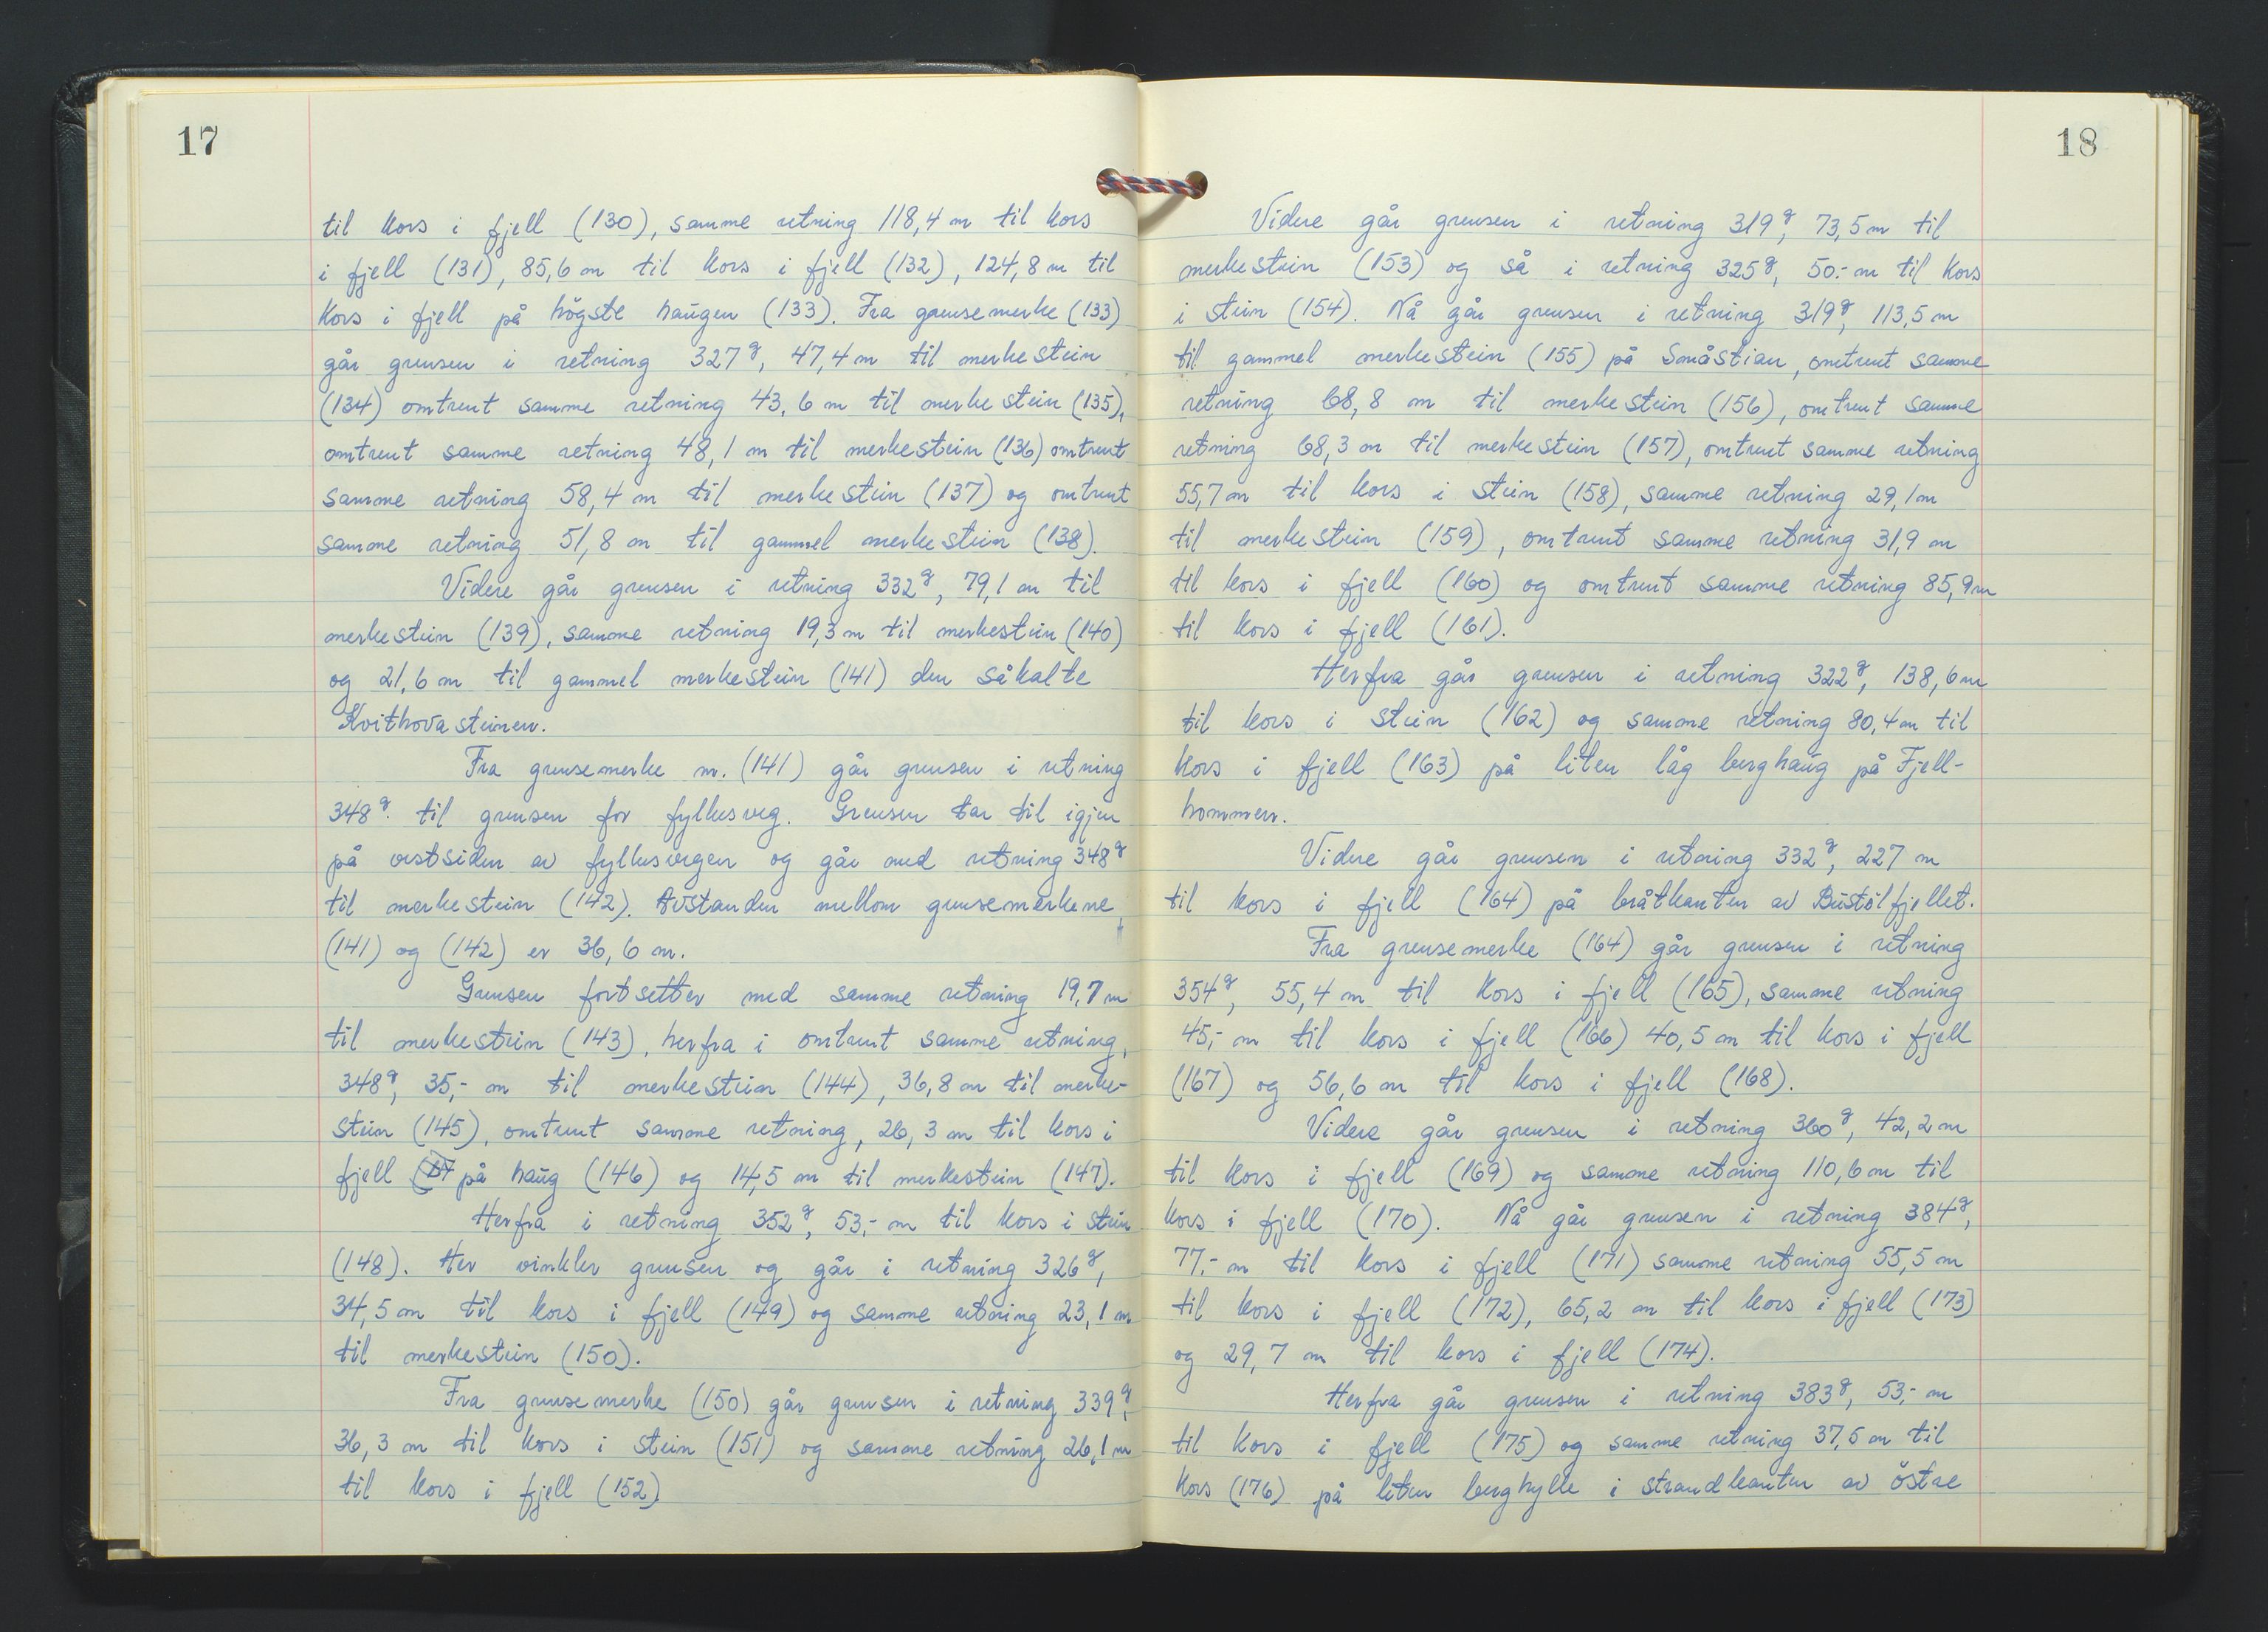 17
til kors i fjell (130), samme retning 118,4 m til kors
i fjell (131), 85,6 m til kors i fjell (132), 124,8 m til
kors i fjell på högste haugen (133). Fra grensemerke (133)
går grensen i retning 327g, 47,4 m til merkestein
(134) omtrent samme retning 43,6 m til merkestein (135),
omtrent samme retning 48,1 m til merkestein (136) omtrent
samme retning 58,4 m til merkestein (137) og omtrent
samme retning 51,8 m til gammel merkestein (138).
Videre går grensen i retning 332g, 79,1 m til
merkestein (139), samme retning 19,3 m til merkestein (140)
og 21,6 m til gammel merkestein (141) den såkalte
Kvithovasteinen.
Fra grensemerke nr. (141) går grensen i retning
348g. til grensen for fylkesveg. Grensen tar til igjen
på vestsiden av fylkesvegen og går med retning 348g
til merkestein (142). Avstanden mellom grensemerkene
(141) og (142) er 36,6 m.
Grensen fortsetter med samme retning 19,7 m
til merkestein (143), herfra i omtrent samme retning,
348g, 35,- m til merkestein (144), 36,8 m til merke-
stein (145), omtrent samme retning, 26,3 m til kors i
fjell på haug (146) og 14,5 m til merkestein (147).
Herfra i retning 352g, 53,- m til kors i stein
(148). Her vinkler grensen og går i retning 326g,
34,5 m til kors i fjell (149) og samme retning 23,1 m
til merkestein (150).
Fra grensemerke (150) går grensen i retning 339g,
36,3 m til kors i stein (151) og samme retning 26,1 m
til kors i fjell (152)
18
Videre går grensen i retning 319g, 73,5 m til
merkestein (153) og så i retning 325g, 50.- m til kors
i stein (154). Nå går grensen i retning 319g, 113,5 m
til gammel merkestein (155) på Småstian, omtrent samme
retning 68,8 m til merkestein (156), omtrent samme
retning 68,3 m til merkestein (157), omtrent samme retning
55,7 m til kors i stein (158), samme retning 29,1 m
til merkestein (159), omtrent samme retning 31,9 m
til kors i fjell (160) og omtrent samme retning 85,9 m
til kors i fjell (161).
Herfra går grensen i retning 322g, 138,6 m
til kors i stein (162) og samme retning 80,4 m til
kors i fjell (163) på liten låg berghaug på Fjell-
hommen.
Videre går grensen i retning 332g, 227 m
til kors i fjell (164) på bråtkanten av Bustölfjellet.
Fra grensemerke (164) går grensen i retning
354g, 55,4 m til kors i fjell (165), samme retning
45,- m til kors i fjell (166) 40,5 m til kors i fjell
(167) og 56,6 m til kors i fjell (168).
Videre går grensen i retning 360g, 42,2 m
til kors i fjell (169) og samme retning 110,6 m til
kors i fjell (170). Nå går grensen i retning 384g,
77.- m til kors i fjell (171) samme retning 55,5 m
til kors i fjell (172), 65,2 m til kors i fjell (173)
og 29,7 m til kors i fjell (174).
Herfra går grensen i retning 383g, 53,- m
til kors i fjell (175) og samme retning 37,5 m til
kors (176) på liten berghylle i strandkanten av östre